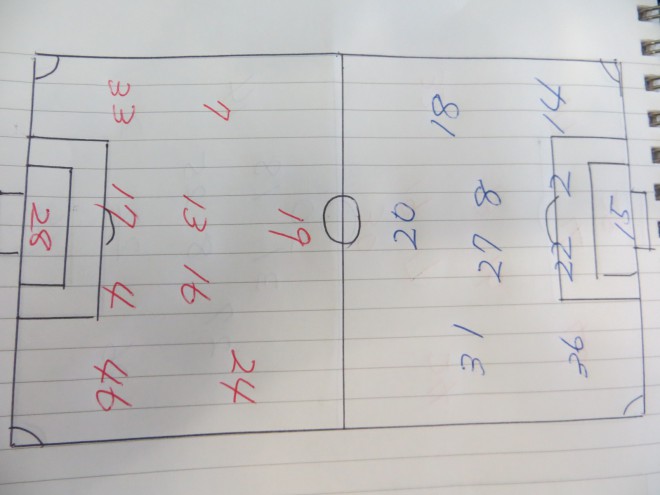 33
7
18
14
17
13
8
2
28
19
20
15
4
16
27
22
46
24
31
36